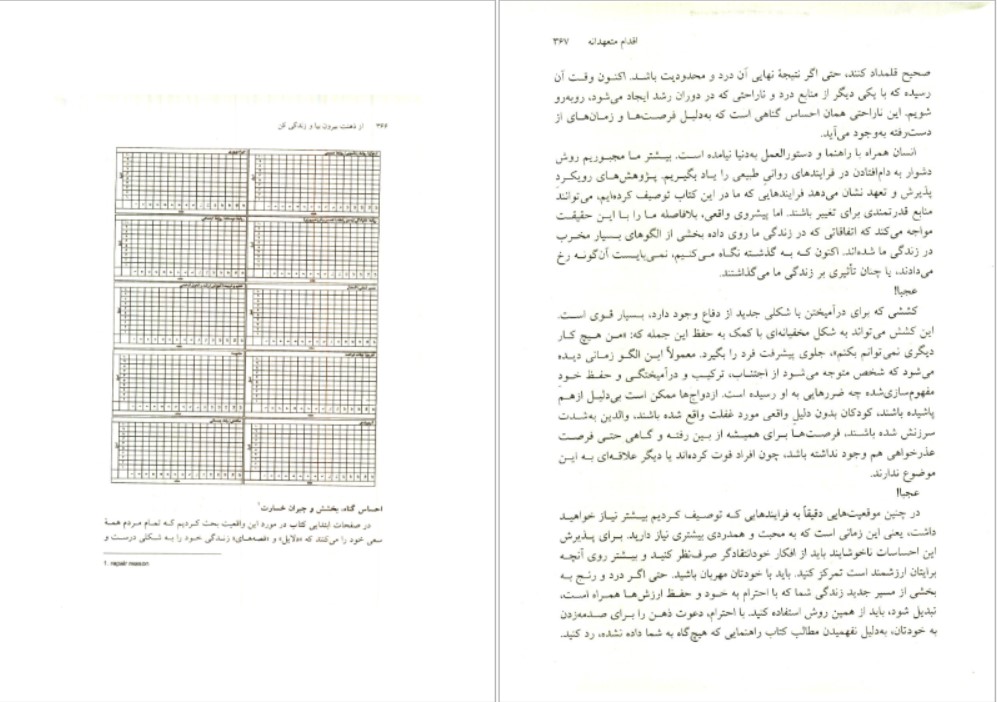 ۳۶۶ از ذهنت بیرون بیا و زندگی کن
احساس گناه، بخشش و جبران خسارت۱
در صفحات ابتدایی کتاب در مورد این واقعیت بحث کردیم که تمام مردم همهٔ
سعی خود را می‌کنند که «دلایل» و «قصه‌های» زندگی خود را به شکلی درست و
1. repair reason
اقدام متعهدانه ۳۶۷
صحیح قلمداد کنند، حتی اگر نتیجهٔ نهایی آن درد و محدودیت باشد. اکنون وقت آن
رسیده که با یکی دیگر از منابع درد و ناراحتی که در دوران رشد ایجاد می‌شود، روبه‌رو
شویم. این ناراحتی همان احساس گناهی است که به‌دلیل فرصت‌ها و زمان‌های از
دست‌رفته به‌وجود می‌آید.
انسان همراه با راهنما و دستورالعمل به‌دنیا نیامده است. بیشتر ما مجبوریم روش
دشوار به دام‌افتادن در فرایندهای روانیِ طبیعی را یاد بگیریم. پژوهش‌های رویکردِ
پذیرش و تعهد نشان می‌دهد فرایندهایی که ما در این کتاب توصیف کرده‌ایم، می‌توانند
منابع قدرتمندی برای تغییر باشند. اما پیشروی واقعی، بلافاصله ما را با این حقیقت
مواجه می‌کند که اتفاقاتی که در زندگی ما روی داده بخشی از الگوهای بسیار مخرب
در زندگی ما شده‌اند. اکنون که به گذشته نگاه می‌کنیم، نمی‌بایست آن‌گونه رخ
می‌دادند، یا چنان تأثیری بر زندگی ما می‌گذاشتند.
عجبا!
کششی که برای درآمیختن با شکلی جدید از دفاع وجود دارد، بسیار قوی است.
این کشش می‌تواند به شکل مخفیانه‌ای با کمک به حفظ این جمله که: «من هیچ کار
دیگری نمی‌توانم بکنم»، جلوی پیشرفت فرد را بگیرد. معمولاً این الگو زمانی دیده
می‌شود که شخص متوجه می‌شود از اجتناب، ترکیب و درآمیختگی و حفظ خودِ
مفهوم‌سازی‌شده چه ضررهایی به او رسیده است. ازدواج‌ها ممکن است بی‌دلیل ازهم
پاشیده باشند، کودکان بدون دلیلِ واقعی مورد غفلت واقع شده باشند، والدین به‌شدت
سرزنش شده باشند، فرصت‌ها برای همیشه از بین رفته و گاهی حتی فرصت
عذرخواهی هم وجود نداشته باشد، چون افراد فوت کرده‌اند یا دیگر علاقه‌ای به این
موضوع ندارند.
عجبا!
در چنین موقعیت‌هایی دقیقاً به فرایندهایی که توصیف کردیم بیشتر نیاز خواهید
داشت، یعنی این زمانی است که به محبت و همدردی بیشتری نیاز دارید. برای پذیرش
این احساسات ناخوشایند باید از افکار خودانتقادگر صرف‌نظر کنید و بیشتر روی آنچه
برایتان ارزشمند است تمرکز کنید. باید با خودتان مهربان باشید. حتی اگر درد و رنج به
بخشی از مسیر جدید زندگی شما که با احترام به خود و حفظ ارزش‌ها همراه است،
تبدیل شود، باید از همین روش استفاده کنید. با احترام، دعوت ذهن را برای صدمه‌زدن
به خودتان، به‌دلیل نفهمیدن مطالب کتاب راهنمایی که هیچ‌گاه به شما داده نشده، رد کنید.